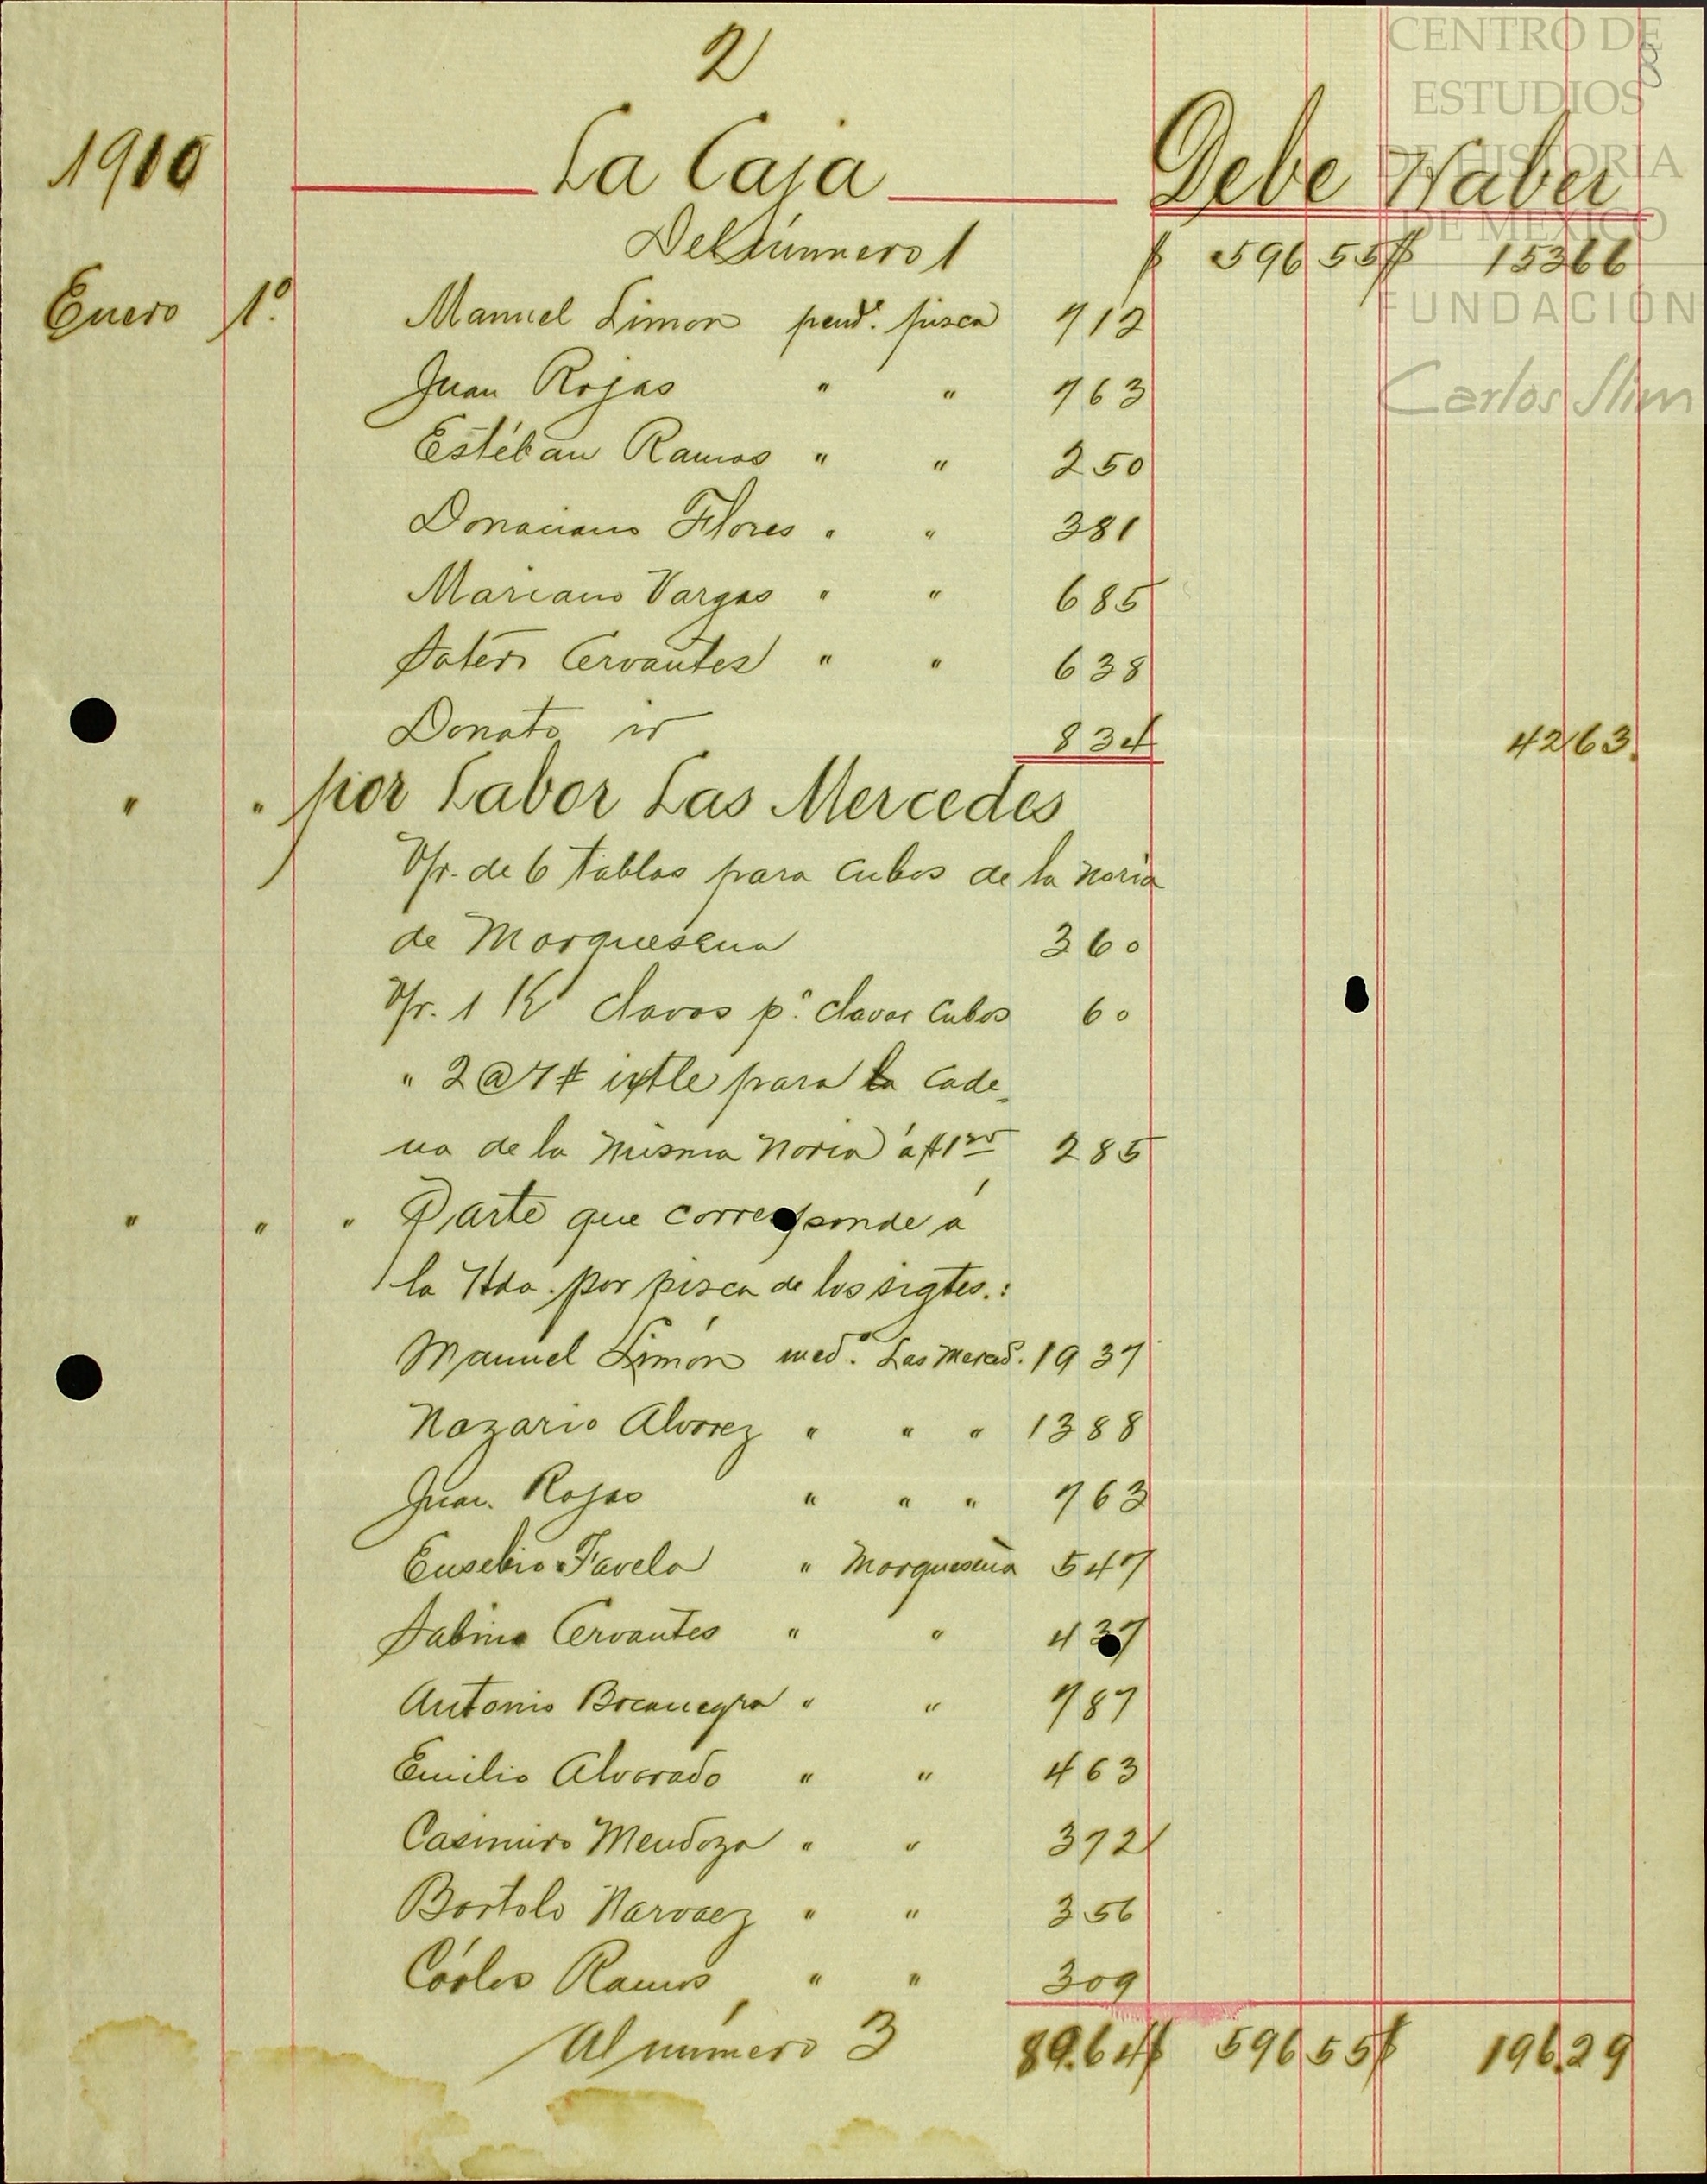 2
CENTRO DE
ESTUDIOS
DE HISTORIA
DE MEXICO
FUNDACION
Carlos Slim
8
1910 La Caja Debe Haber
Del número 1 $ 596 55 $ 153 66
Enero 1º. Manuel Limon pend. pisca 7 12
Juan Rojas " " 7 63
Estéban Ramos " " 2 50
Donaciano Flores " " 3 81
Mariano Vargas " " 6 85
Sotero Cervantes " " 6 38
Donato id 8 34 42 63.
" " por Labor Las Mercedes
V/r. de 6 tablas para cubos de la noria
de Marqueseña 3 60
V/r. 1 K clavos pª. clavar cubos 60
" 2@7# ixtle para la cade
na de la misma noria á $1 25 2 85
" " " Parte que corresponde á
la Hda. por pisca de los sigtes.:
Manuel Limón medº. Las Merced. 19 37
Nazario Alvarez " " " 13 88
Juan Rojas " " " 7 63
Eusebio Favela " Marqueseña 5 47
Sabino Cervantes " " 4 37
Antonio Bocanegra " " 7 87
Emilio Alvarado " " 4 63
Casimiro Mendoza " " 3 72
Bartolo Narvaez " " 3 56
Cárlos Ramos " " 3 09
Al número 3 89.64 $ 596 55 $ 196.29